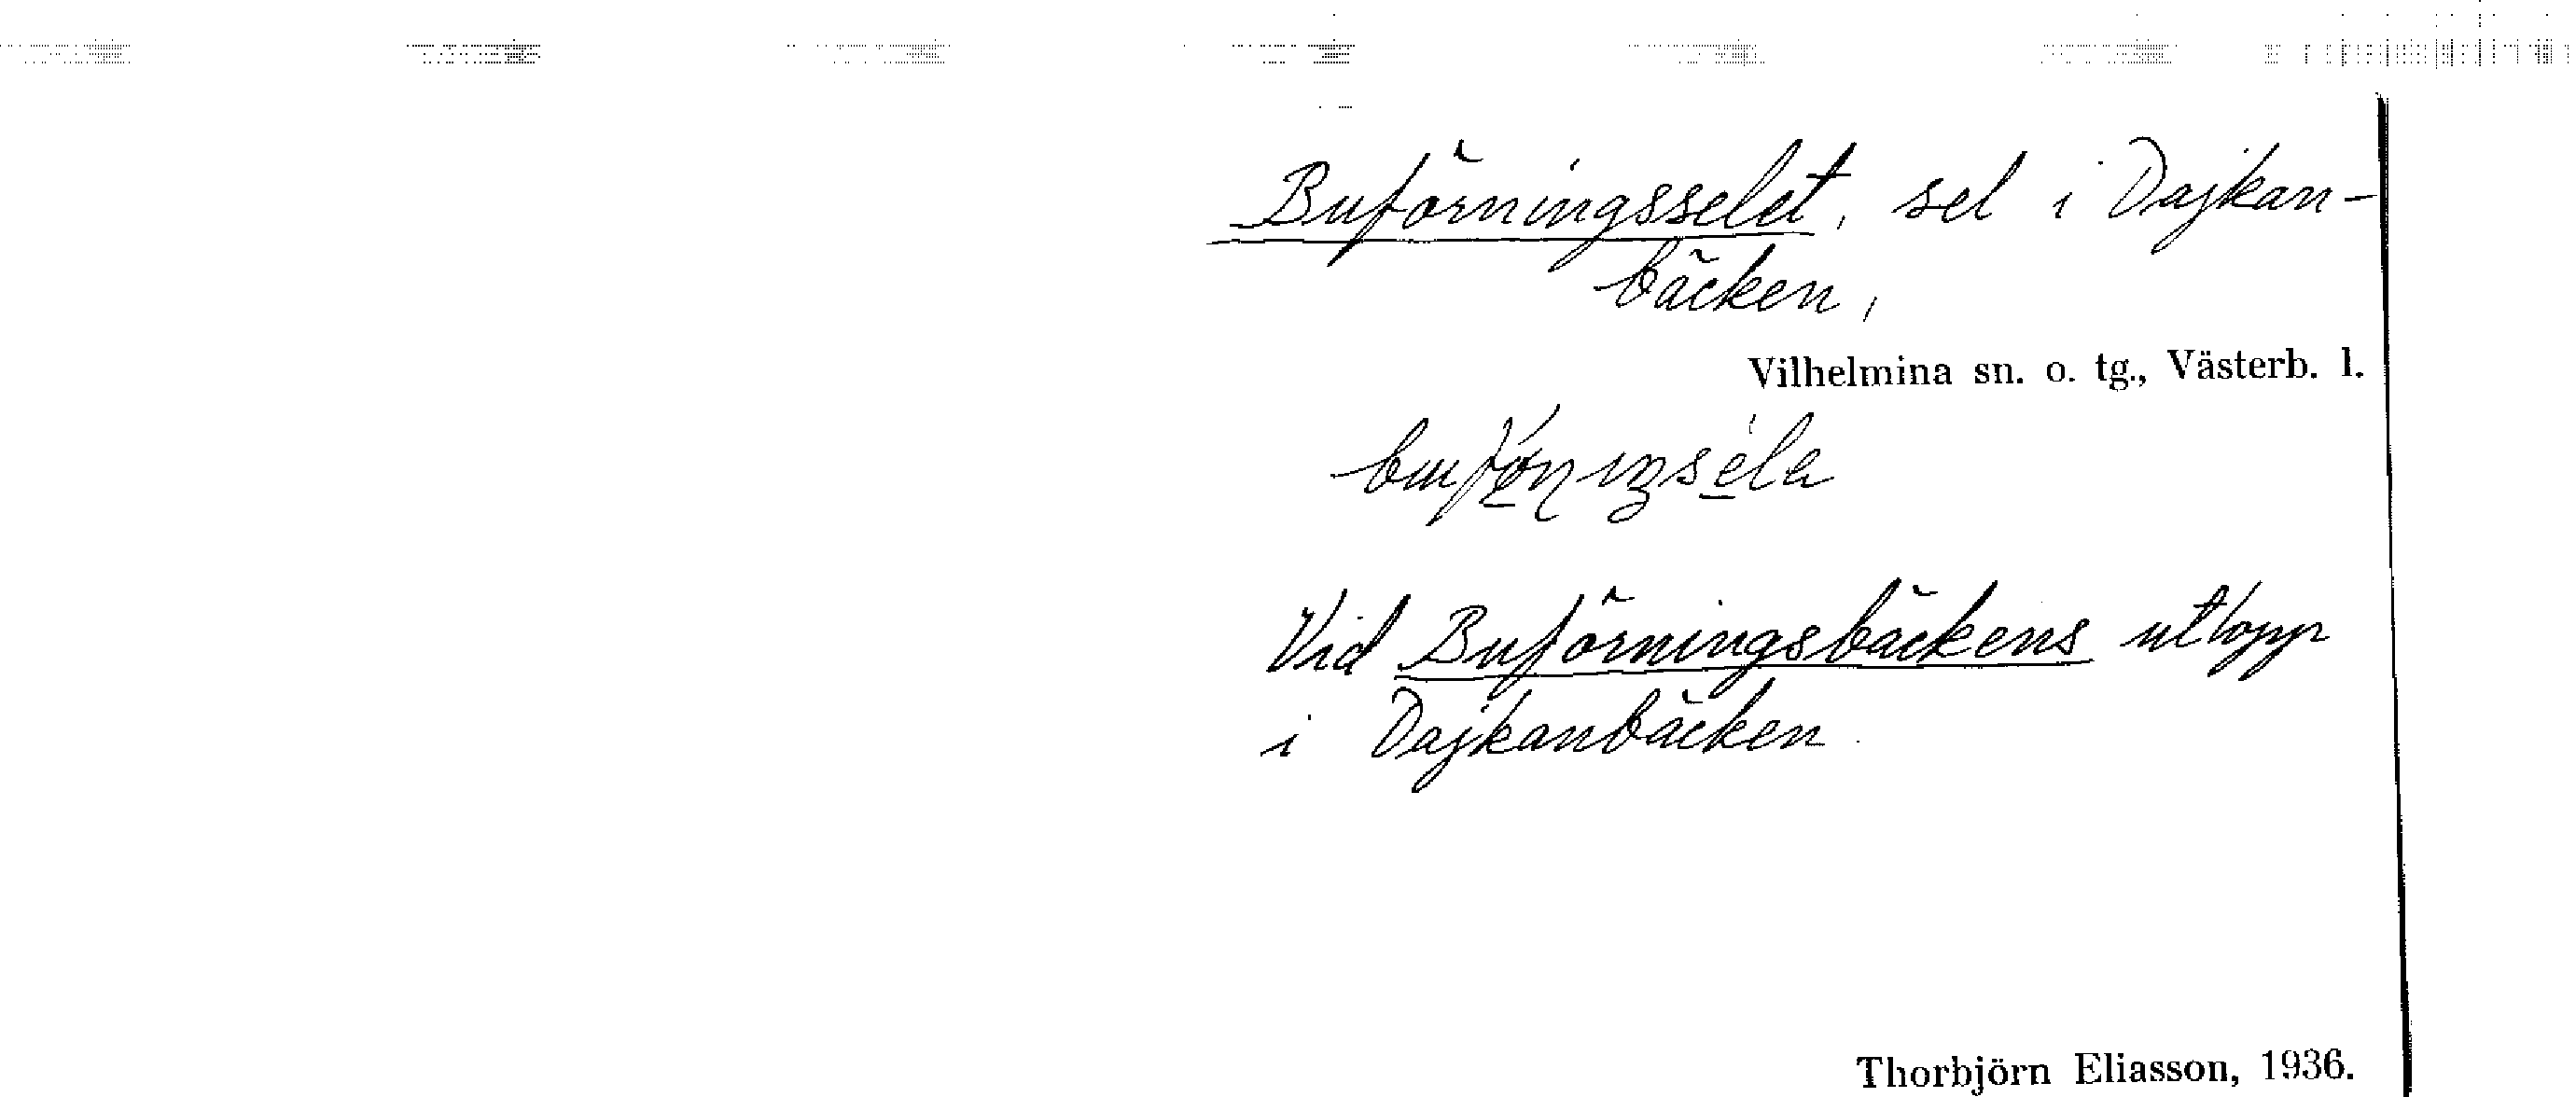 Buförningsselet, sel i Dajkan-
bäcken,
Vilhelmina sn. o. tg., Västerb. l.
Vid Buförningsbäckens utlopp
i Dajkanbäcken.
Thorbjörn Eliasson, 1936.